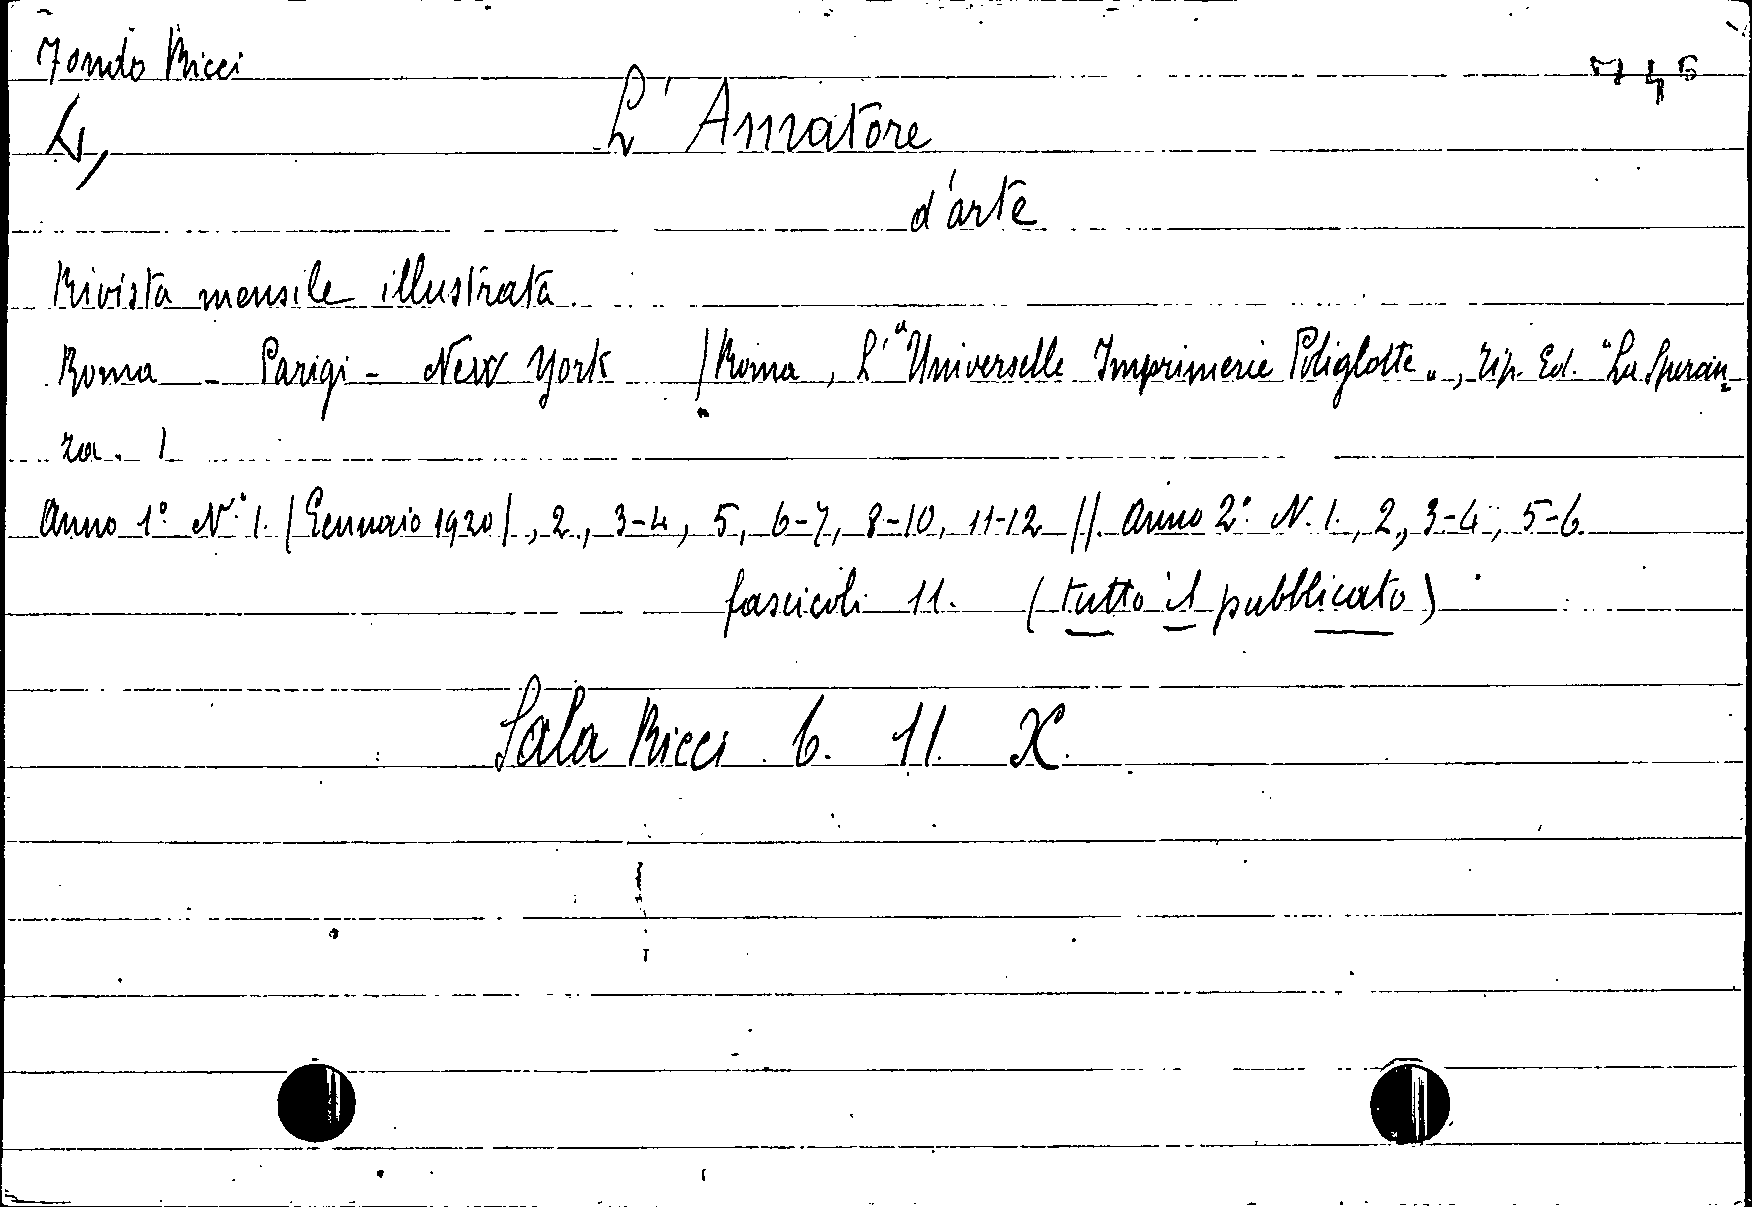 Fondo Ricci
5745
L'Amatore
d'arte
Rivista mensile illustrata
Roma - Parigi - New York /Roma, L'"Universelle Imprimerie Poliglotte", Tip. Ed. "La Speran=
za". /
Anno 1° N.° 1. /Gennaio 1920/, 2, 3-4, 5, 6-7, 8-10, 11-12 //. Anno 2° N. 1., 2, 3-4, 5-6.
fascicoli 11. (tutto il pubblicato)
Sala Ricci 6. 11. X.